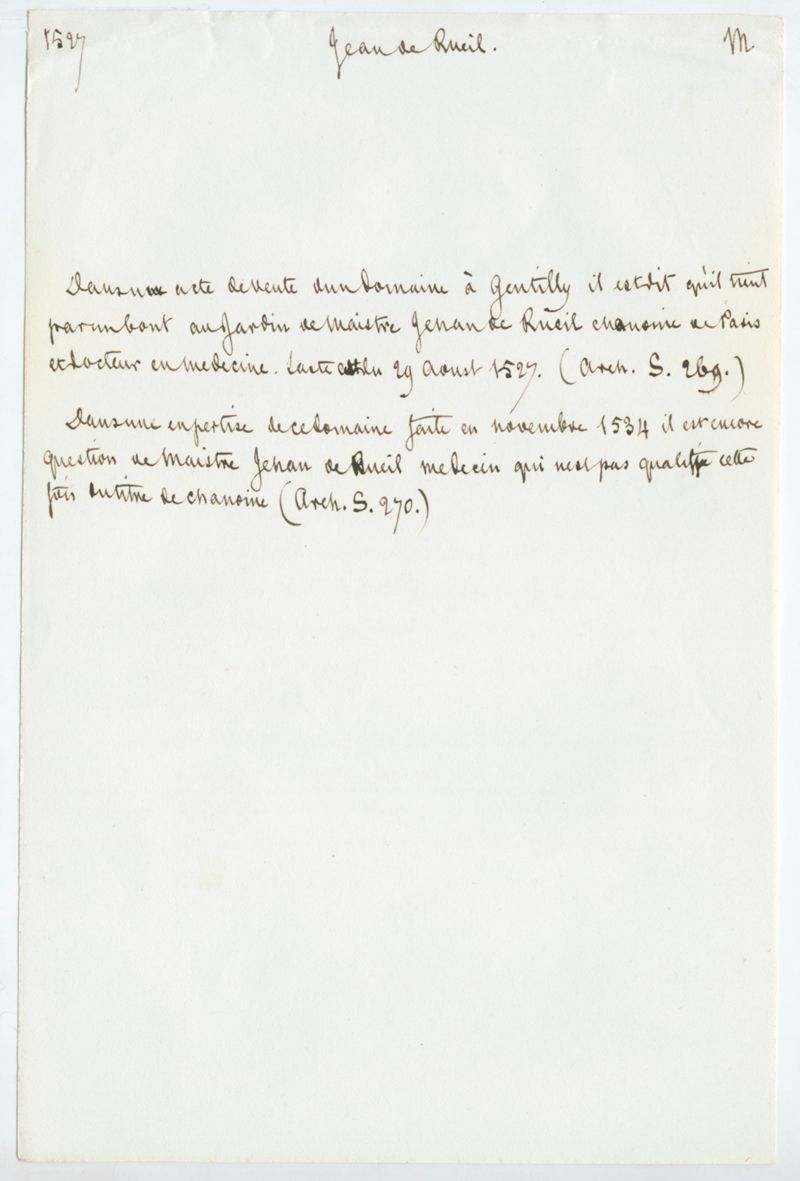 1527 Jean de Rueil. M
Dans un acte de vente d'un domaine à Gentilly il est dit qu'il tient
par un bout au Jardin de Maistre Jehan de Rueil chanoine de Paris
et docteur en medecine. L'acte est du 29 Aoust 1527. (Arch. S. 269.)
Dans une expertise de ce domaine faite en novembre 1534 il est encore
question de Maistre Jehan de Rueil medecin qui n'est pas qualifié cette
fois du titre de chanoine (Arch. S. 270.)